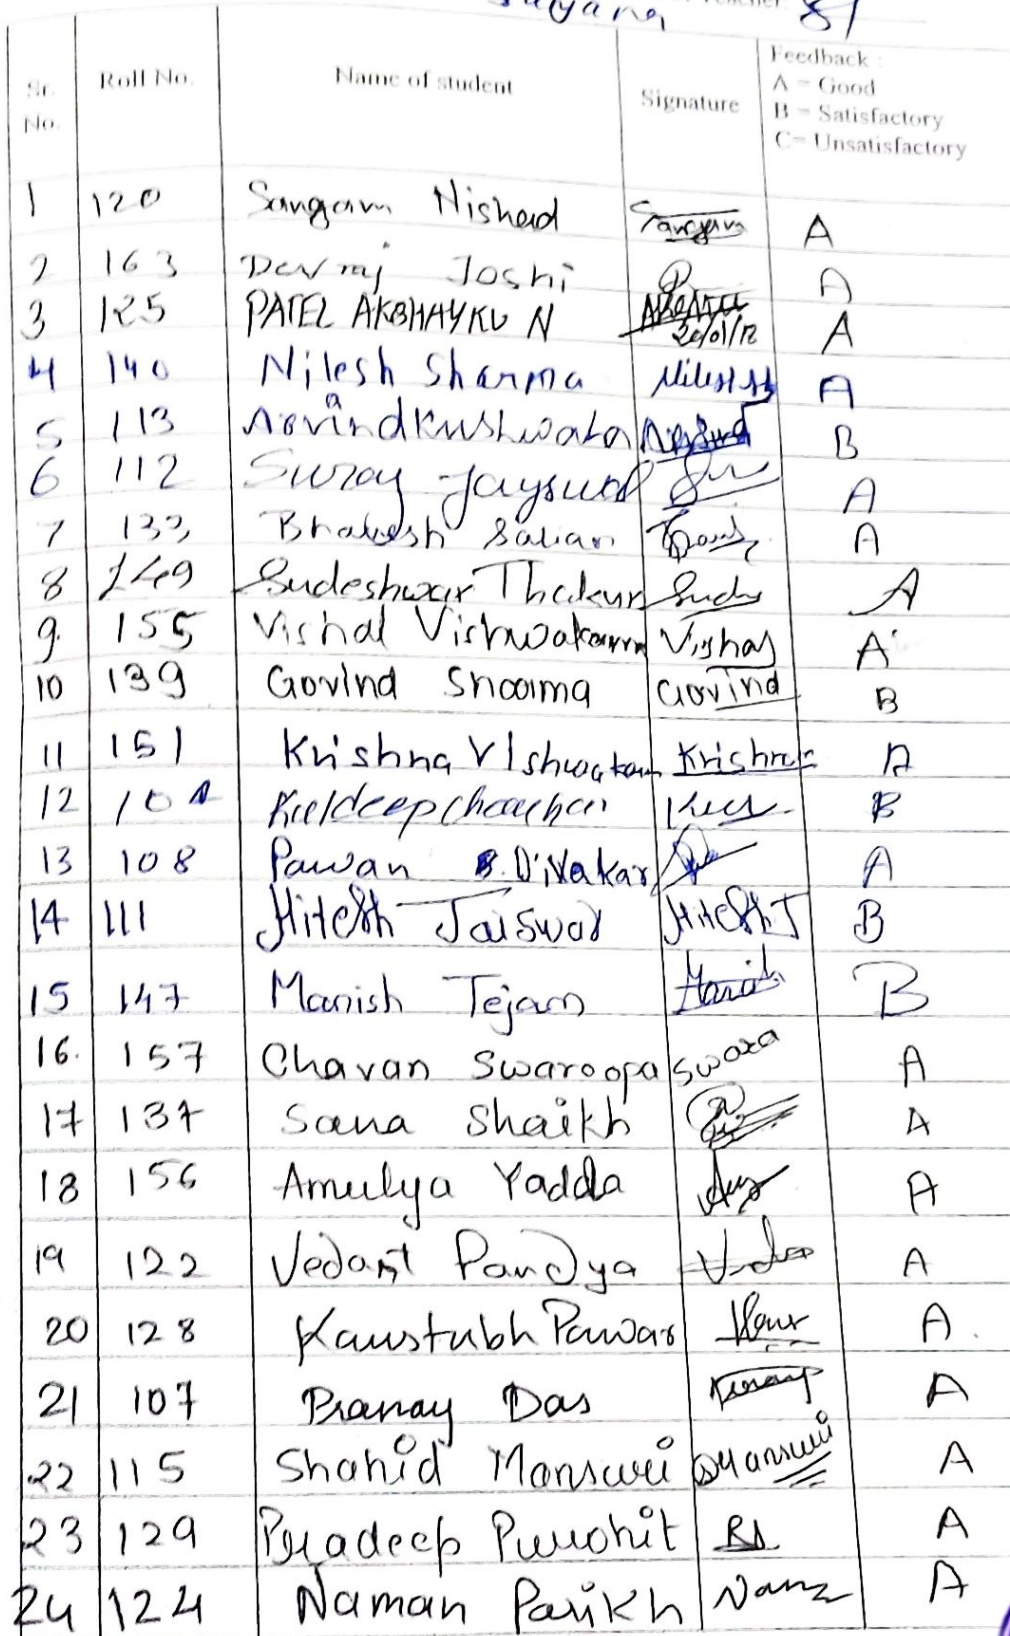 Sr. No. Roll No. Name of student Signature Feedback :
A = Good
B = Satisfactory
C= Unsatisfactory
1 120 Sangam Nishad Sangam A
2 163 Devraj Joshi A
3 125 PATEL AKSHAYKU N 20/01/12 A
4 140 Nilesh Sharma Nilesh A
5 113 Arvind Kushwaha B
6 112 Suraj Jayswal A
7 133 Bhavesh Salian A
8 149 Sudeshwar Thakur Sudy A
9. 155 Vishal Vishwakarma Vishal A
10 139 Govind Sharma Govind B
11 151 Krishna Vishwakam Krishna A
12 101 Kuldeep Chauhan B
13 108 Pawan B. Divakar A
14 111 Hitesh Jaiswar Hitesh J B
15 147 Manish Tejam Manish B
16. 157 Chavan Swaroopa Swara A
17 137 Sana Shaikh A
18 156 Amulya Yadda A
19 122 Vedant Pandya A
20 128 Kaustubh Pawar A
21 107 Pranay Das A
22 115 Shahid Mansuri SMansuri A
23 129 Pradeep Purohit A
24 124 Naman Parikh A